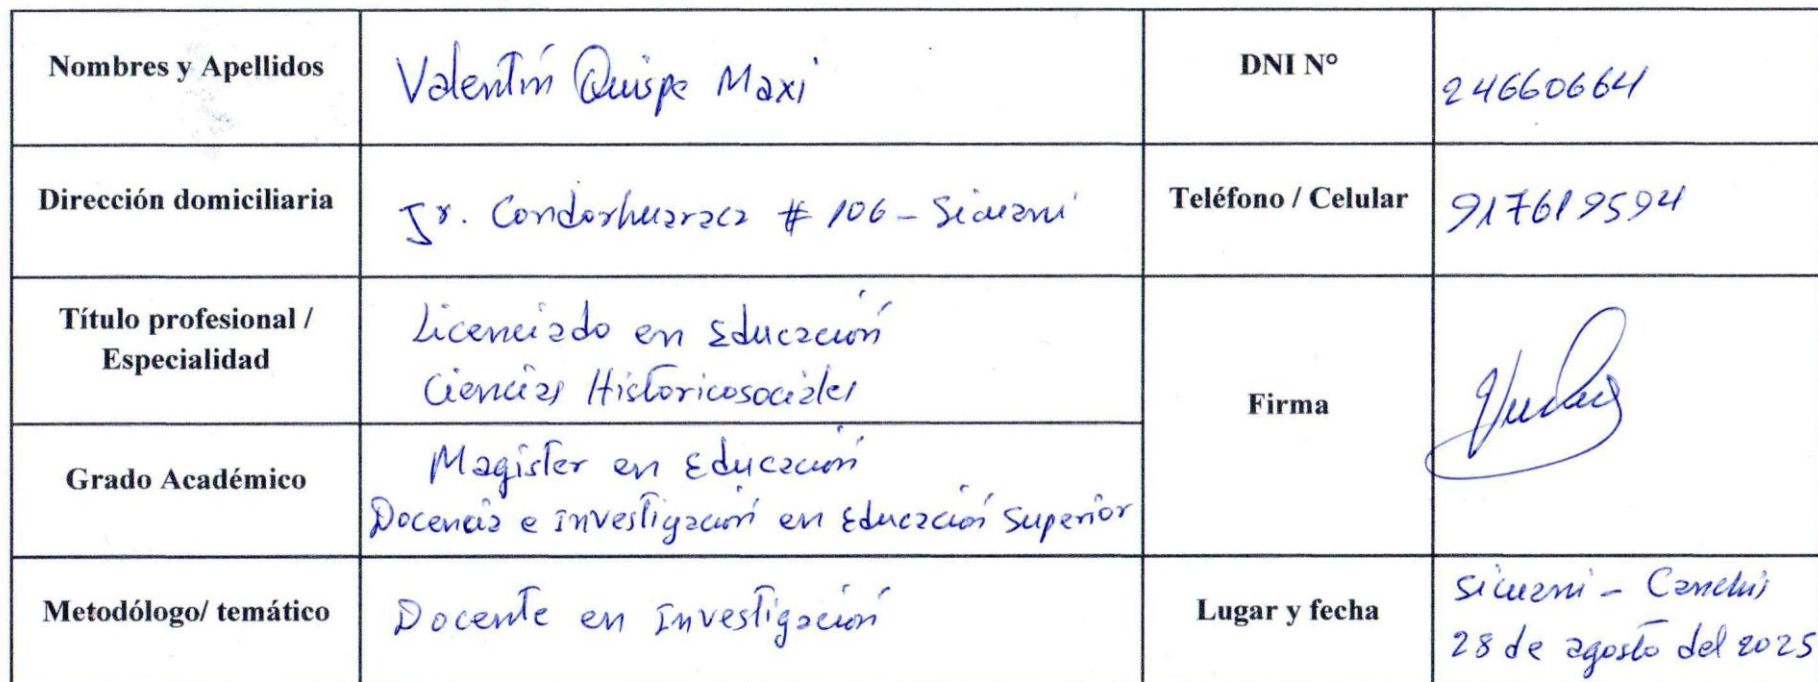 Nombres y Apellidos
Valentín Quispe Maxi
DNI N°
24660664
Dirección domiciliaria
Jr. Condorhuaraca # 106 - Sicuani
Teléfono / Celular
917619594
Título profesional /
Especialidad
Licenciado en Educación
Ciencias Historicosociales
Firma
Grado Académico
Magister en Educación
Docencia e investigación en Educación Superior
Metodólogo/ temático
Docente en Investigación
Lugar y fecha
Sicuani - Canchis
28 de agosto del 2025